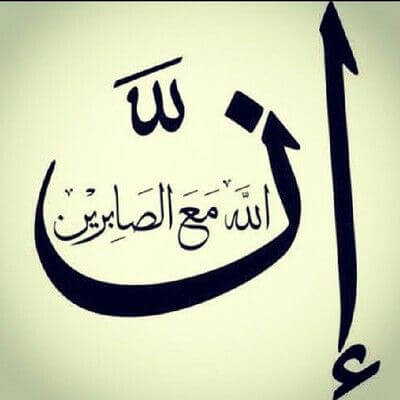 إنّ
الله مَعَ الصَابِرِيْن